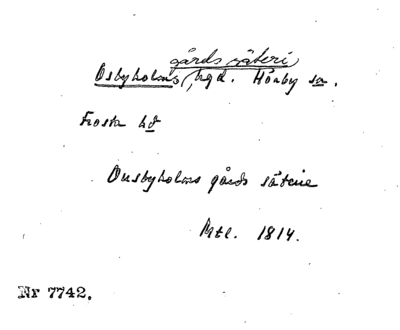 gårds säteri
Osbyholms, hgd. Hörby sn.
Frosta hd
Ousbyholms gårds säterie
Mtl. 1814.
Nr 7742.